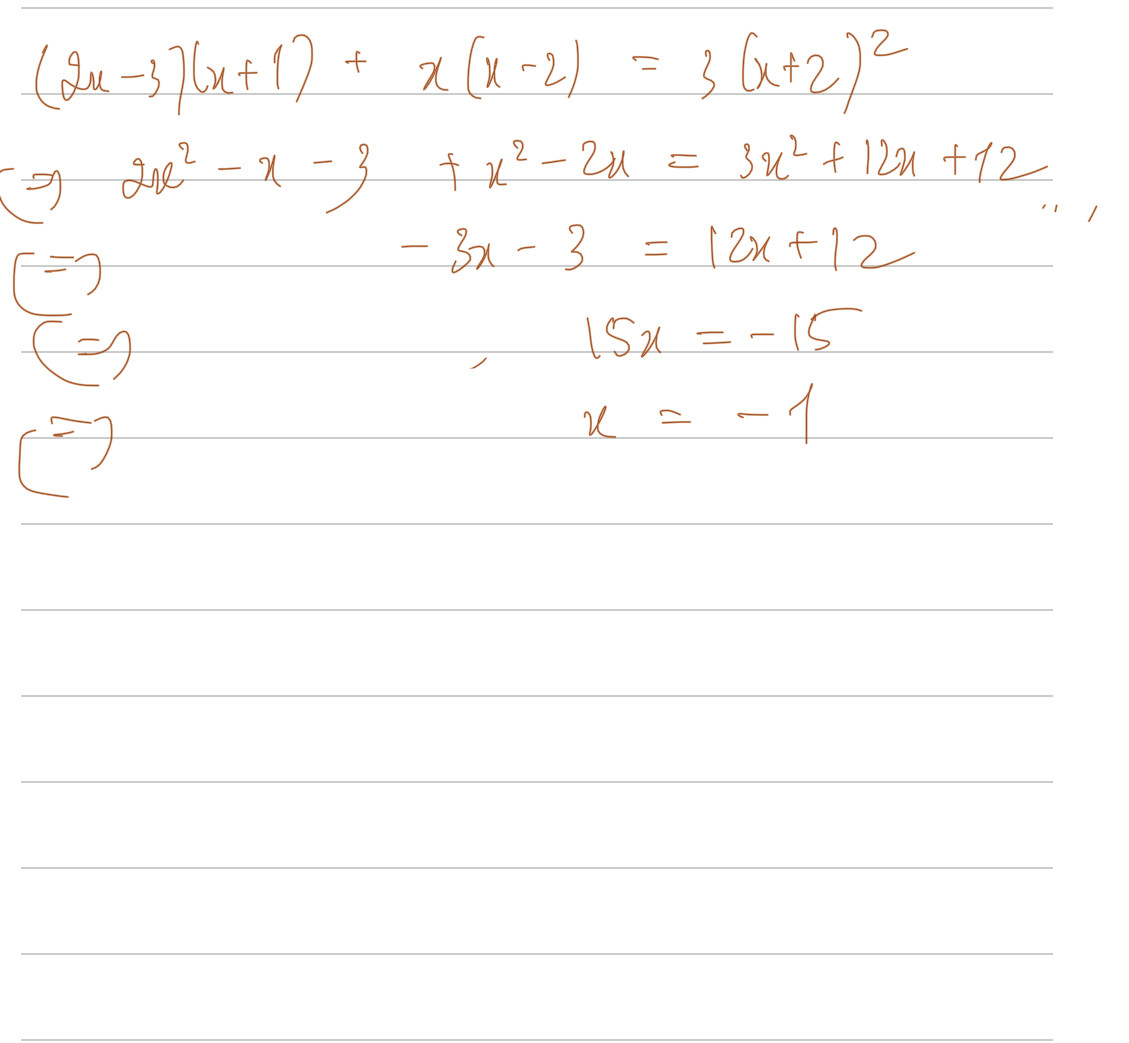 (2x-3)(x+1) + x(x-2) = 3(x+2)²
(=) 2x² - x - 3 + x² - 2x = 3x² + 12x + 12
(=) - 3x - 3 = 12x + 12
(=) 15x = - 15
(=) x = - 1